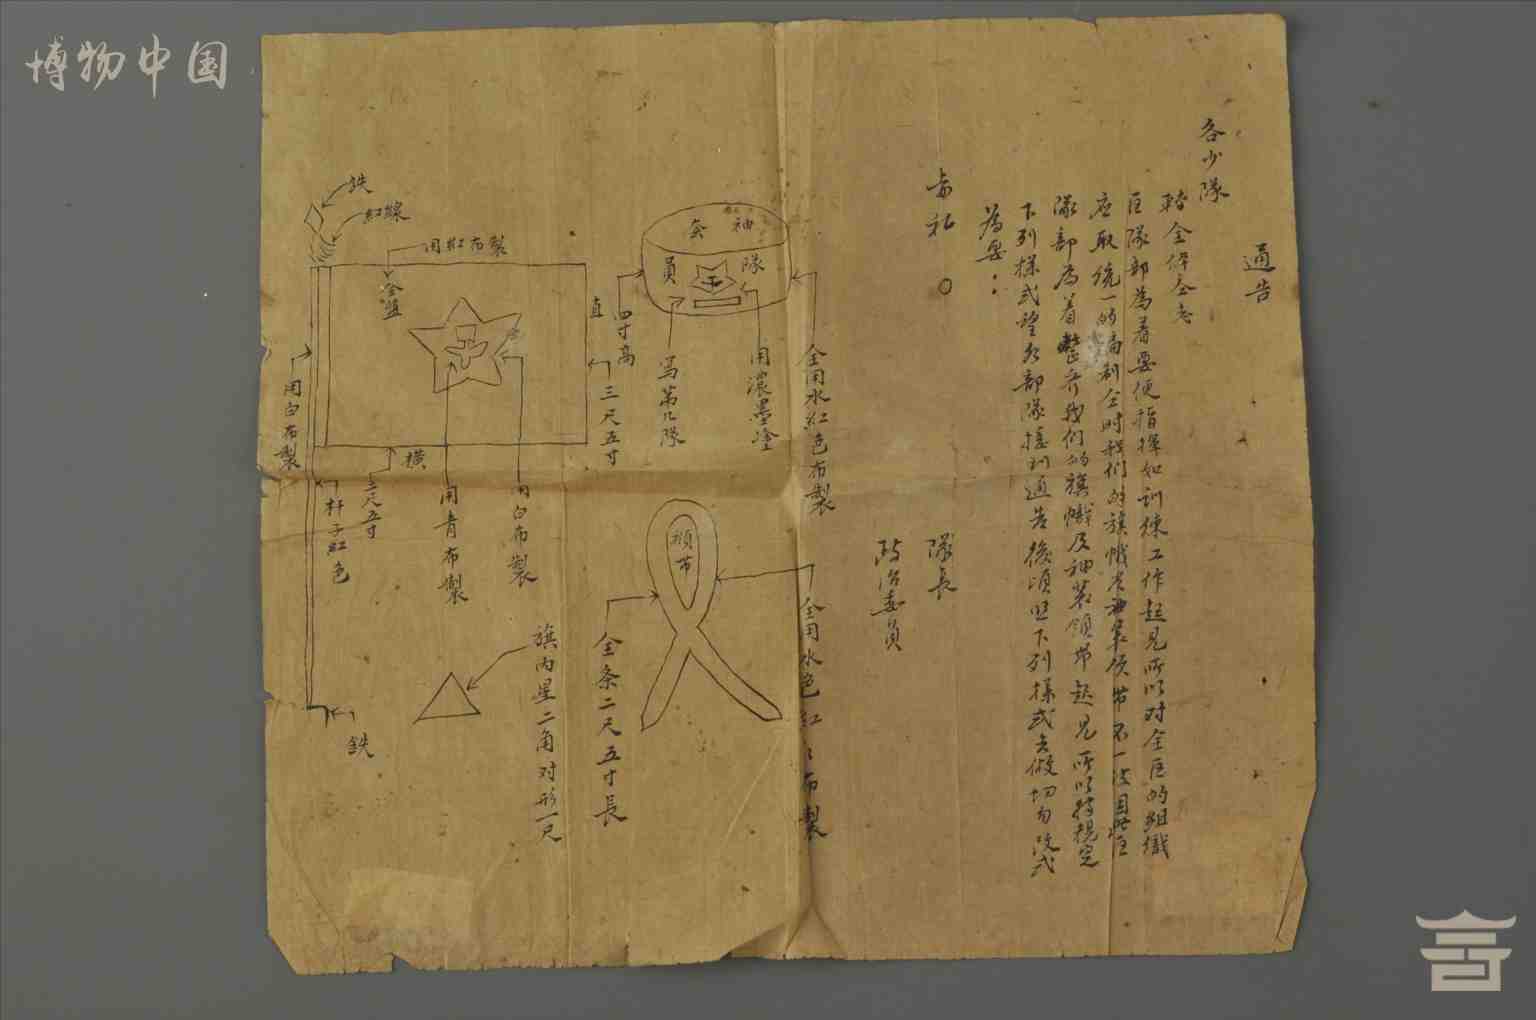 博物中国
通告
各少隊
轉全体全志
区隊部為着要便指揮和訓練工作起見所以对全区的組織
应取統一的编制全时我們的旗幟不一致因此区
隊部為着整齐我们的旗幟及袖套領帶起見所以特規定
下列樣式望各部隊接到通告後頃照下列樣式去做切勿改式
為要：
敬礼 〇
隊長
政治委員
全用水紅色布製
袖套
隊員
用濃墨塗
写第几隊
四寸高
直
三尺五寸
用紅布製
全藍
紅線
鉄
用白布製
用青布製
橫
三尺五寸
杆子紅色
用白布製
鉄
領帶
全用水色紅布製
全条二尺五寸長
旗内星二角对形一尺